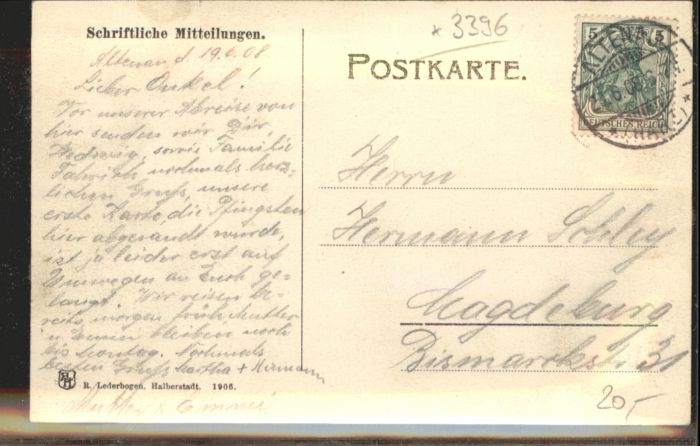 Schriftliche Mitteilungen.
Altenau, d. 19.6.08
Lieber Onkel!
Vor unserer Abreise von
hier senden wir Dir,
Hedwig, sowie Familie
nochmals herz-
lichen Gruß, unsere
erste Karte, die Pfingsten
hier abgesandt wurde,
ist ja leider erst auf
Umwegen an Euch ge-
langt. Wir reisen be-
reits morgen früh Mutter
u Emmi bleiben noch
bis Sonntag. Nochmals
besten Gruß Martha + Hermann
Mutter + Emmi
R. Lederbogen, Halberstadt. 1906.
* 3396
POSTKARTE.
5 5
DEUTSCHES REICH
ALTENAU
Herrn
Hermann Schley
Magdeburg
Bismarckstr 31
20,-